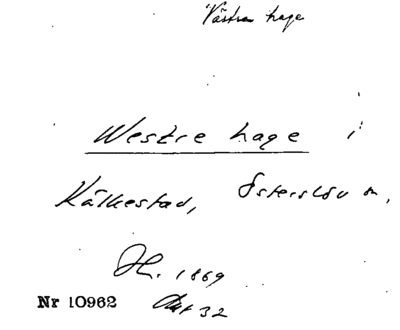 Västra hage
Westre hage i
Kälkestad, Österslöv sn,
Jk. 1869
Nr 10962 Akt 32